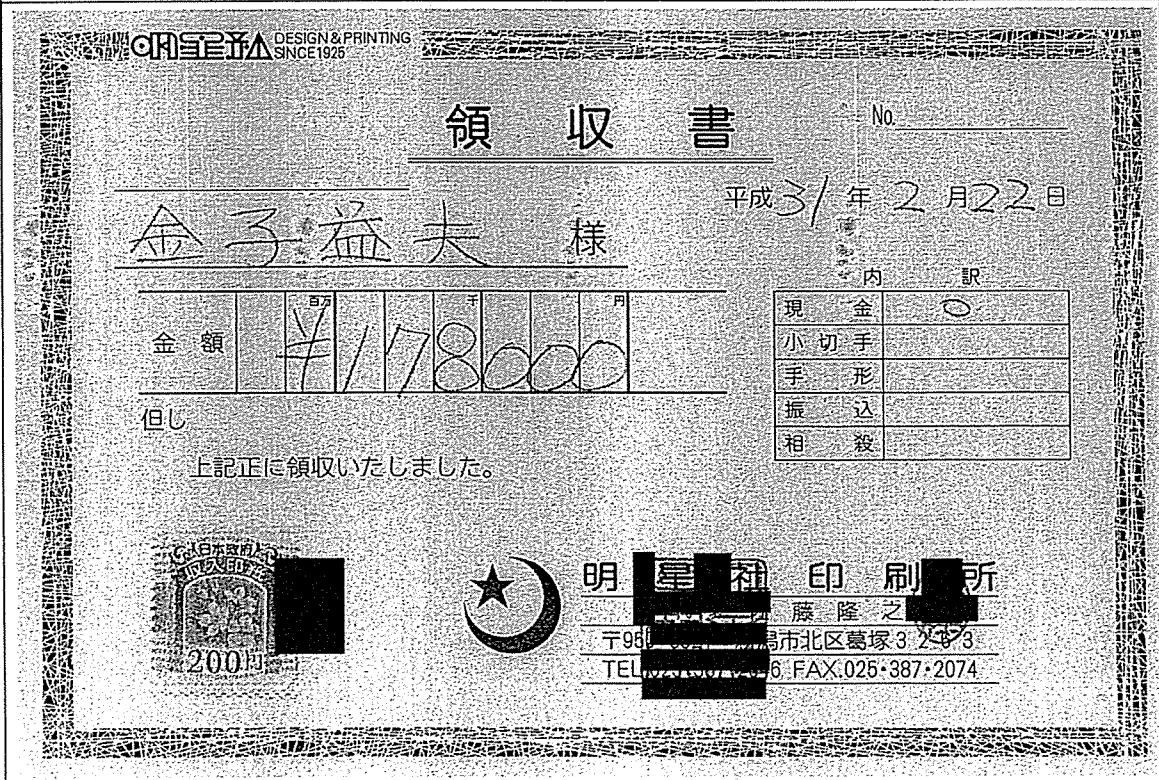 DESIGN & PRINTING
SINCE 1925
領収書
No.
平成31年2月22日
金子益夫 様
内訳
百万 千 円
金額 ¥178000
現金 ○
小切手
手形
振込
相殺
但し
上記正に領収いたしました。
日本政府
収入印紙
200円
明星社印刷所
藤隆之
市北区葛塚3
FAX.025・387・2074